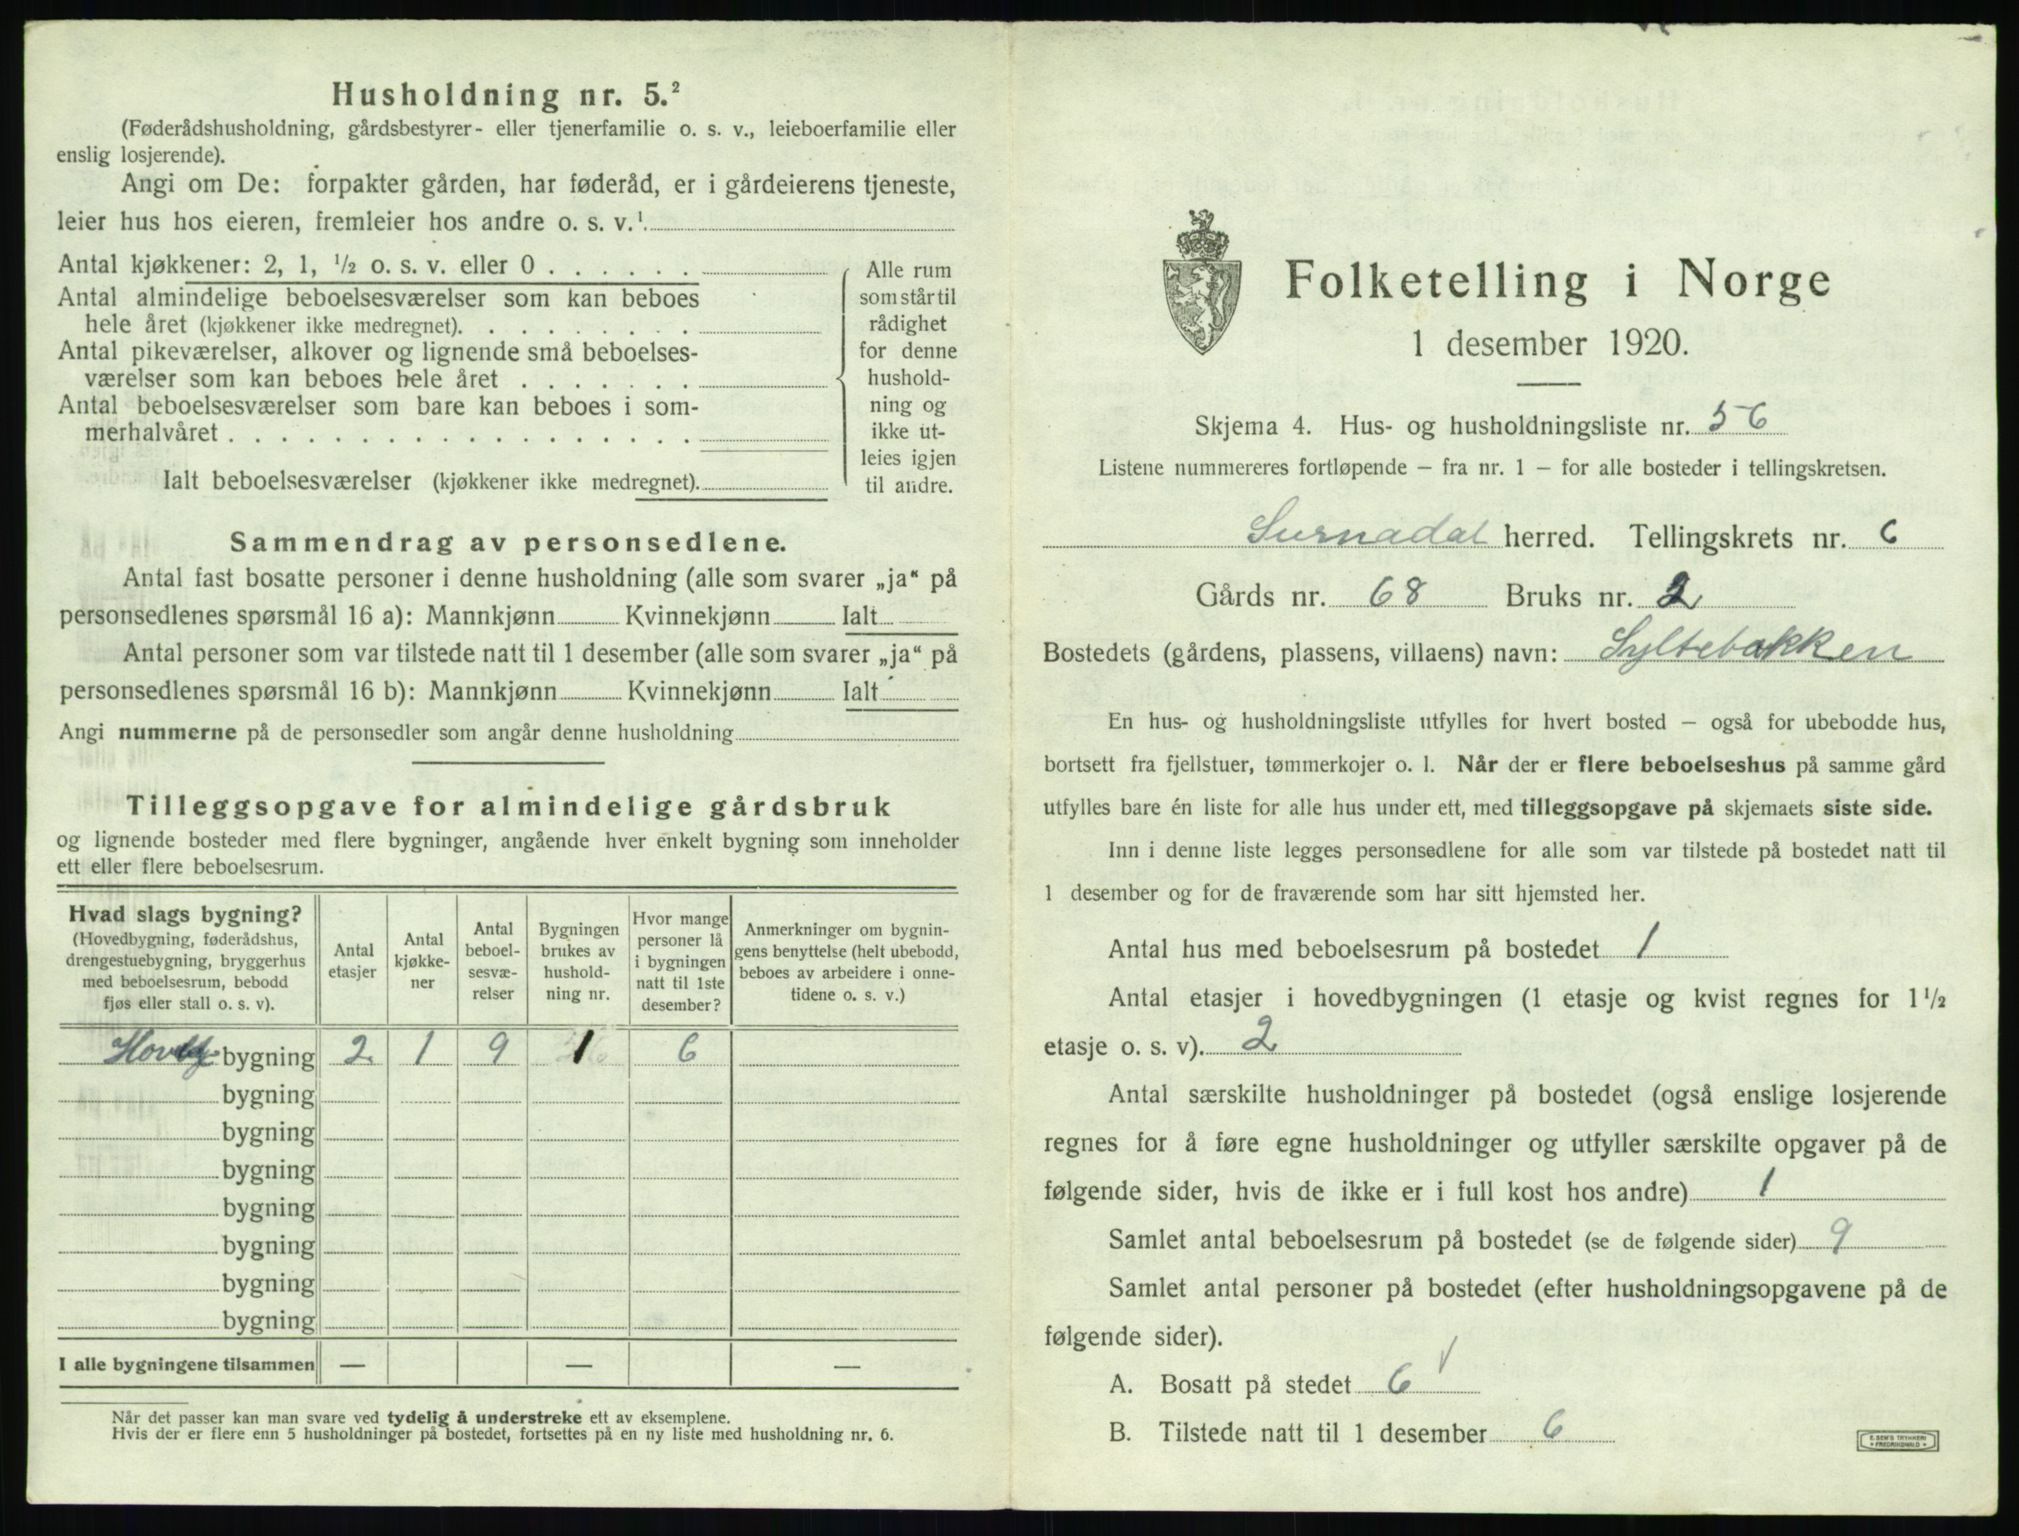 Husholdning nr. 5.²
(Føderådshusholdning, gårdsbestyrer- eller tjenerfamilie o. s. v., leieboerfamilie eller
enslig losjerende).
Angi om De: forpakter gården, har føderåd, er i gårdeierens tjeneste,
leier hus hos eieren, fremleier hos andre o. s. v.¹
Antal kjøkkener: 2, 1, ½ o. s. v. eller 0 . . . . . .
Antal almindelige beboelsesværelser som kan beboes
hele året (kjøkkener ikke medregnet). . . . . . . . .
Antal pikeværelser, alkover og lignende små beboelses-
værelser som kan beboes hele året . . . . . . .
Antal beboelsesværelser som bare kan beboes i som-
merhalvåret . . . . . . . . . . . . . . . . . .
Ialt beboelsesværelser (kjøkkener ikke medregnet).
Alle rum
som står til
rådighet
for denne
hushold-
ning og
ikke ut-
leies igjen
til andre.
Sammendrag av personsedlene.
Antal fast bosatte personer i denne husholdning (alle som svarer „ja" på
personsedlenes spørsmål 16 a): Mannkjønn Kvinnekjønn Ialt
Antal personer som var tilstede natt til 1 desember (alle som svarer „ja" på
personsedlenes spørsmål 16 b): Mannkjønn Kvinnekjønn Ialt
Angi nummerne på de personsedler som angår denne husholdning
Tilleggsopgave for almindelige gårdsbruk
og lignende bosteder med flere bygninger, angående hver enkelt bygning som inneholder
ett eller flere beboelsesrum.
Hvad slags bygning?
(Hovedbygning, føderådshus,
drengestuebygning, bryggerhus
med beboelsesrum, bebodd
fjøs eller stall o. s. v).
Antal
etasjer
Antal
kjøkke-
ner
Antal
beboel-
sesvæ-
relser
Bygningen
brukes av
hushold-
ning nr.
Hvor mange
personer lå
i bygningen
natt til 1ste
desember?
Anmerkninger om bygnin-
gens benyttelse (helt ubebodd,
beboes av arbeidere i onne-
tidene o. s. v.)
bygning 2 1 9 1 6
bygning
bygning
bygning
bygning
bygning
bygning
bygning
I alle bygningene tilsammen — — —
Når det passer kan man svare ved tydelig å understreke ett av eksemplene.
Hvis der er flere enn 5 husholdninger på bostedet, fortsettes på en ny liste med husholdning nr. 6.
Folketelling i Norge
1 desember 1920.
Skjema 4. Hus- og husholdningsliste nr. 56
Listene nummereres fortløpende – fra nr. 1 – for alle bosteder i tellingskretsen.
Surnadal herred. Tellingskrets nr. 6
Gårds nr. 68 Bruks nr. 2
Bostedets (gårdens, plassens, villaens) navn: Syltebakken
En hus- og husholdningsliste utfylles for hvert bosted – også for ubebodde hus,
bortsett fra fjellstuer, tømmerkojer o. l. Når der er flere beboelseshus på samme gård
utfylles bare én liste for alle hus under ett, med tilleggsopgave på skjemaets siste side.
Inn i denne liste legges personsedlene for alle som var tilstede på bostedet natt til
1 desember og for de fraværende som har sitt hjemsted her.
Antal hus med beboelsesrum på bostedet 1
Antal etasjer i hovedbygningen (1 etasje og kvist regnes for 1½
etasje o. s. v). 2
Antal særskilte husholdninger på bostedet (også enslige losjerende
regnes for å føre egne husholdninger og utfyller særskilte opgaver på de
følgende sider, hvis de ikke er i full kost hos andre) 1
Samlet antal beboelsesrum på bostedet (se de følgende sider) 9
Samlet antal personer på bostedet (efter husholdningsopgavene på de
følgende sider).
A. Bosatt på stedet 6
B. Tilstede natt til 1 desember 6
E. SEM'S TRYKKERI
FREDRIKSHALD